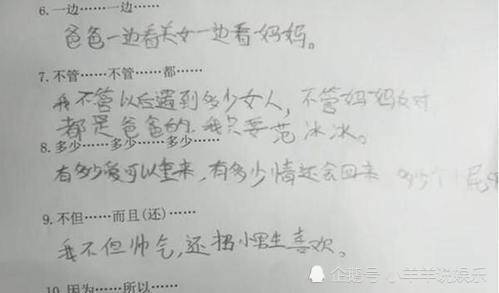 6.一边……一边……
爸爸一边看美女一边看妈妈。
7.不管……不管……都……
我不管以后遇到多少女人，不管妈妈反对
都是爸爸的.我只要范冰冰。
8.多少……多少……多少……
有多少爱可以重来，有多少情还会回来 多少个
9.不但……而且(还)……
我不但帅气，还招小男生喜欢。
企鹅号 小羊羊说娱乐
10.因为……所以……